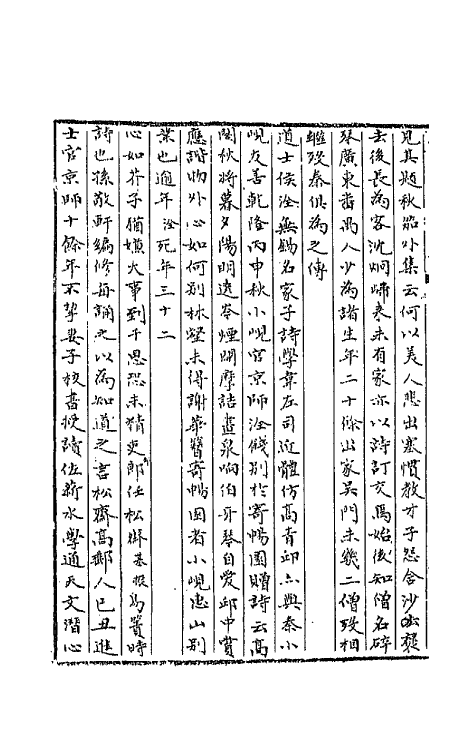 見其題秋笳外集云何以美人悲出塞慣教才子怨含沙出塞
去後長為客沈炯歸來未有家亦以詩訂交焉始後知僧名碎
琴廣東番禺人少為諸生年二十餘出家吳門未幾二僧歿相
繼歿秦俱為之傳
道士侯淦無錫名家子詩學韋左司近體仿高青邱亦與秦小
峴友善乾隆丙申秋小峴官京師淦餞別於寄暢園贈詩云高
閣秋將暮夕陽明遠岑煙開摩詰畫泉响伯牙琴自愛邱中賞
應諧物外心如何別林壑未得謝華簪寄暢園者小峴惠山別
業也逾年淦死年三十二
心如芥子猶嫌大事到千思恐未精吏部任松齋基振為寶時
詩也孫敬軒編修每誦之以為知道之言松齋高郵人已丑進
士官京師十餘年不挈妻子校書授讀佐薪水學通天文潛心